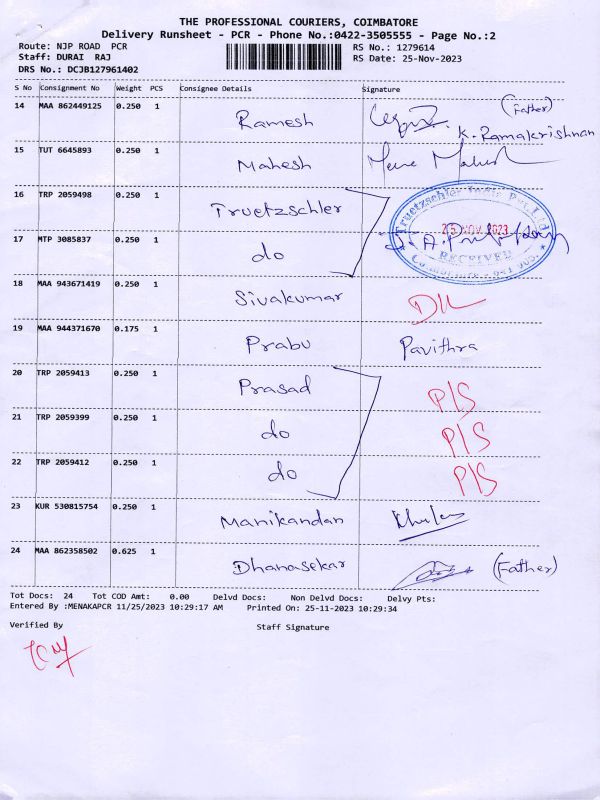 THE PROFESSIONAL COURIERS, COIMBATORE
Delivery Runsheet - PCR - Phone No.:0422-3505555 - Page No.:2
Route: NJP ROAD PCR
RS No.: 1279614
Staff: DURAI RAJ
RS Date: 25-Nov-2023
DRS No.: DCJB127961402
S No Consignment No Weight PCS Consignee Details Signature
14 MAA 862449125 0.250 1 Ramesh (Father) K. Ramakrishnan
15 TUT 6645893 0.250 1 Mahesh
16 TRP 2059498 0.250 1 Truetzschler
Truetzschler India Pvt. Ltd.
25 NOV 2023
RECEIVED
17 MTP 3085837 0.250 1 do
18 MAA 943671419 0.250 1 Sivakumar D/L
19 MAA 944371670 0.175 1 Prabu Pavithra
20 TRP 2059413 0.250 1 Prasad P/S
21 TRP 2059399 0.250 1 do P/S
22 TRP 2059412 0.250 1 do P/S
23 KUR 530815754 0.250 1 Manikandan
24 MAA 862358502 0.625 1 Dhanasekar (Father)
Tot Docs: 24 Tot COD Amt: 0.00 Delvd Docs: Non Delvd Docs: Delvy Pts:
Entered By :MENAKAPCR 11/25/2023 10:29:17 AM Printed On: 25-11-2023 10:29:34
Verified By Staff Signature